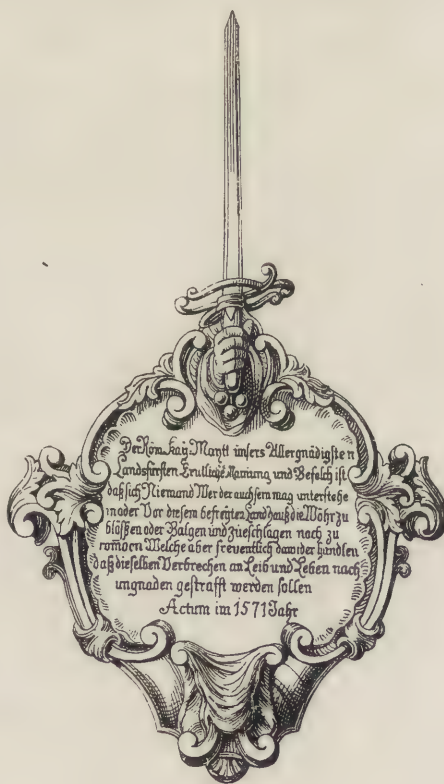 Der Röm. Kay. Maytt unsers Allergnädigsten
Landsfürsten Ernstliche Mainung und Befelch ist
daß sich Niemand Wer der auch sem mag unterstehe
in oder Vor diesem befreiten Landhauß die Wöhr zu
blößen oder Balgen und zueschlagen noch zu
romorn Welche aber freventlich dawider handlen
daß dieselben Verbrechen an Leib und Leben nach
ungnaden gestrafft werden sollen
Actum im 1571 Jahr